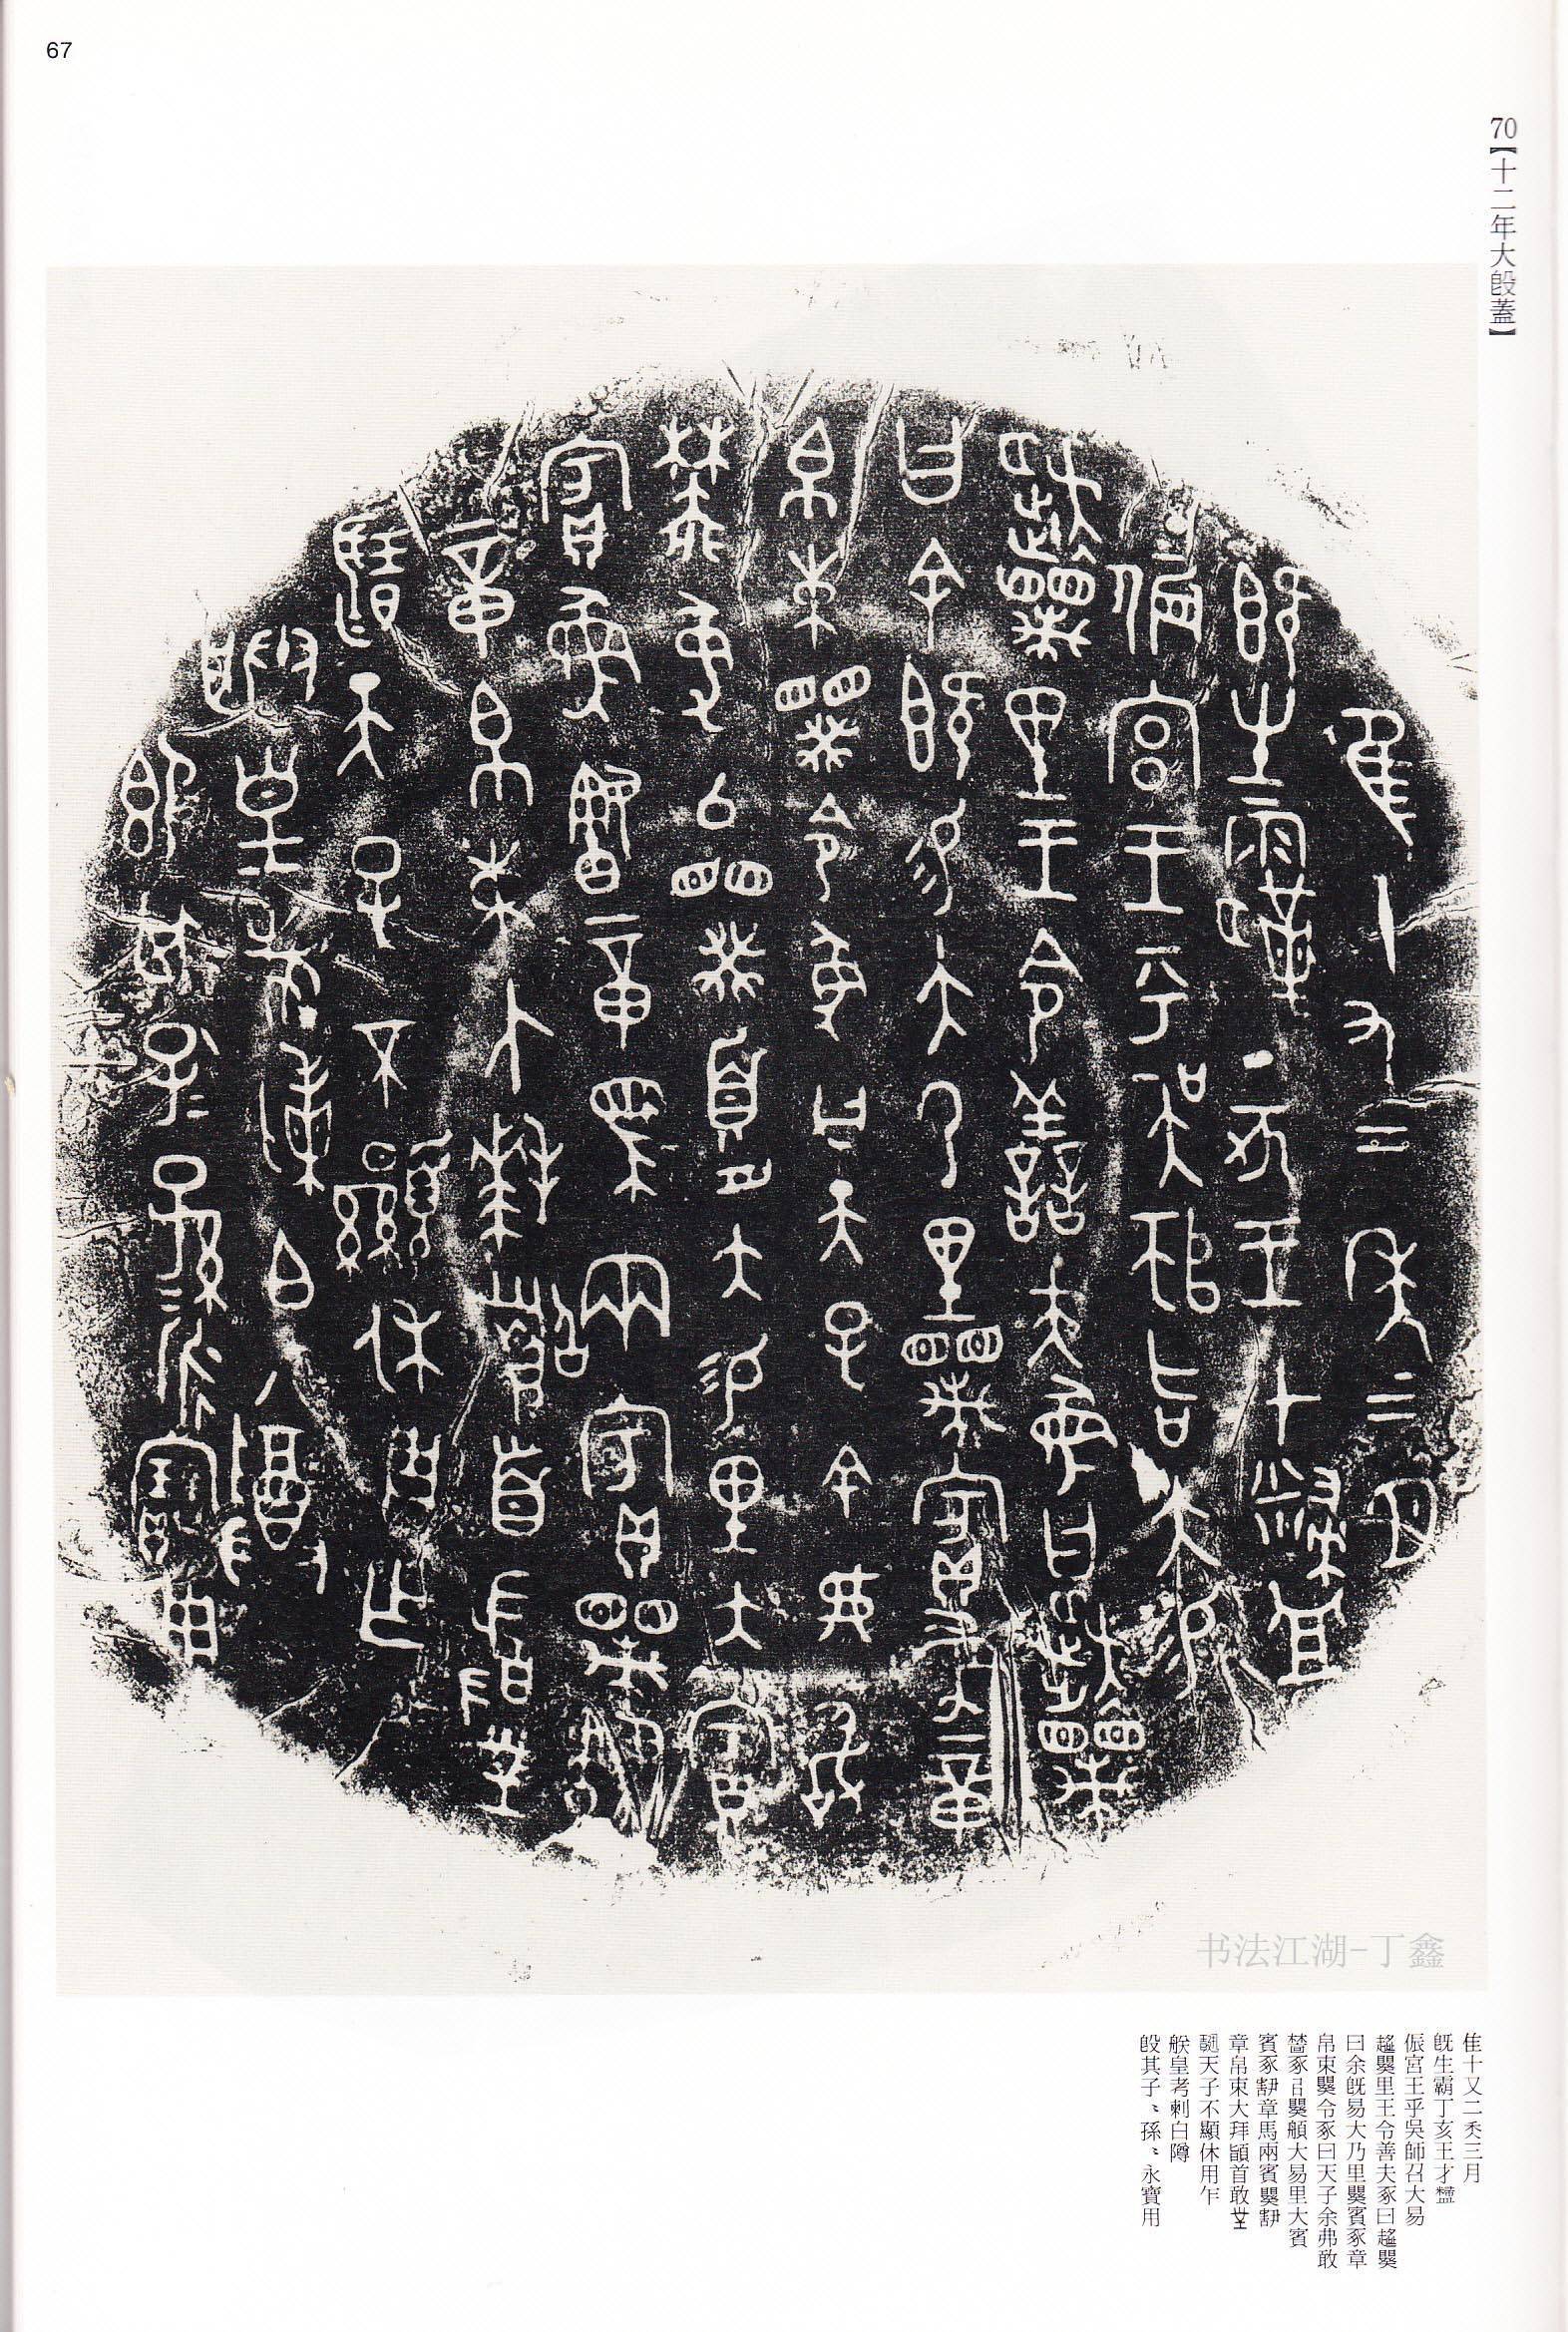 67
70【十二年大𣪘蓋】
隹十又二秊三月
旣生霸丁亥王才
侲宮王乎吳師召大易
里王令善夫豖曰
曰余旣易大乃里賓豖章
帛束令豖曰天子余弗敢
豖大易里大賓
賓豖章馬兩賓
章帛束大拜𩒨首敢
天子不顯休用乍
朕皇考剌白䵼
𣪘其子〻孫〻永寶用
书法江湖-丁鑫